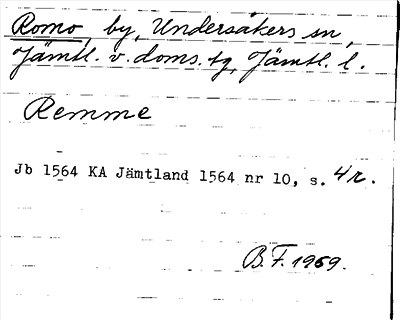 Romo, by, Undersåkers sn,
Jämtl. v. doms. tg, Jämtl. l.
Remme
Jb 1564 KA Jämtland 1564 nr 10, s. 4r.
B.F. 1959.